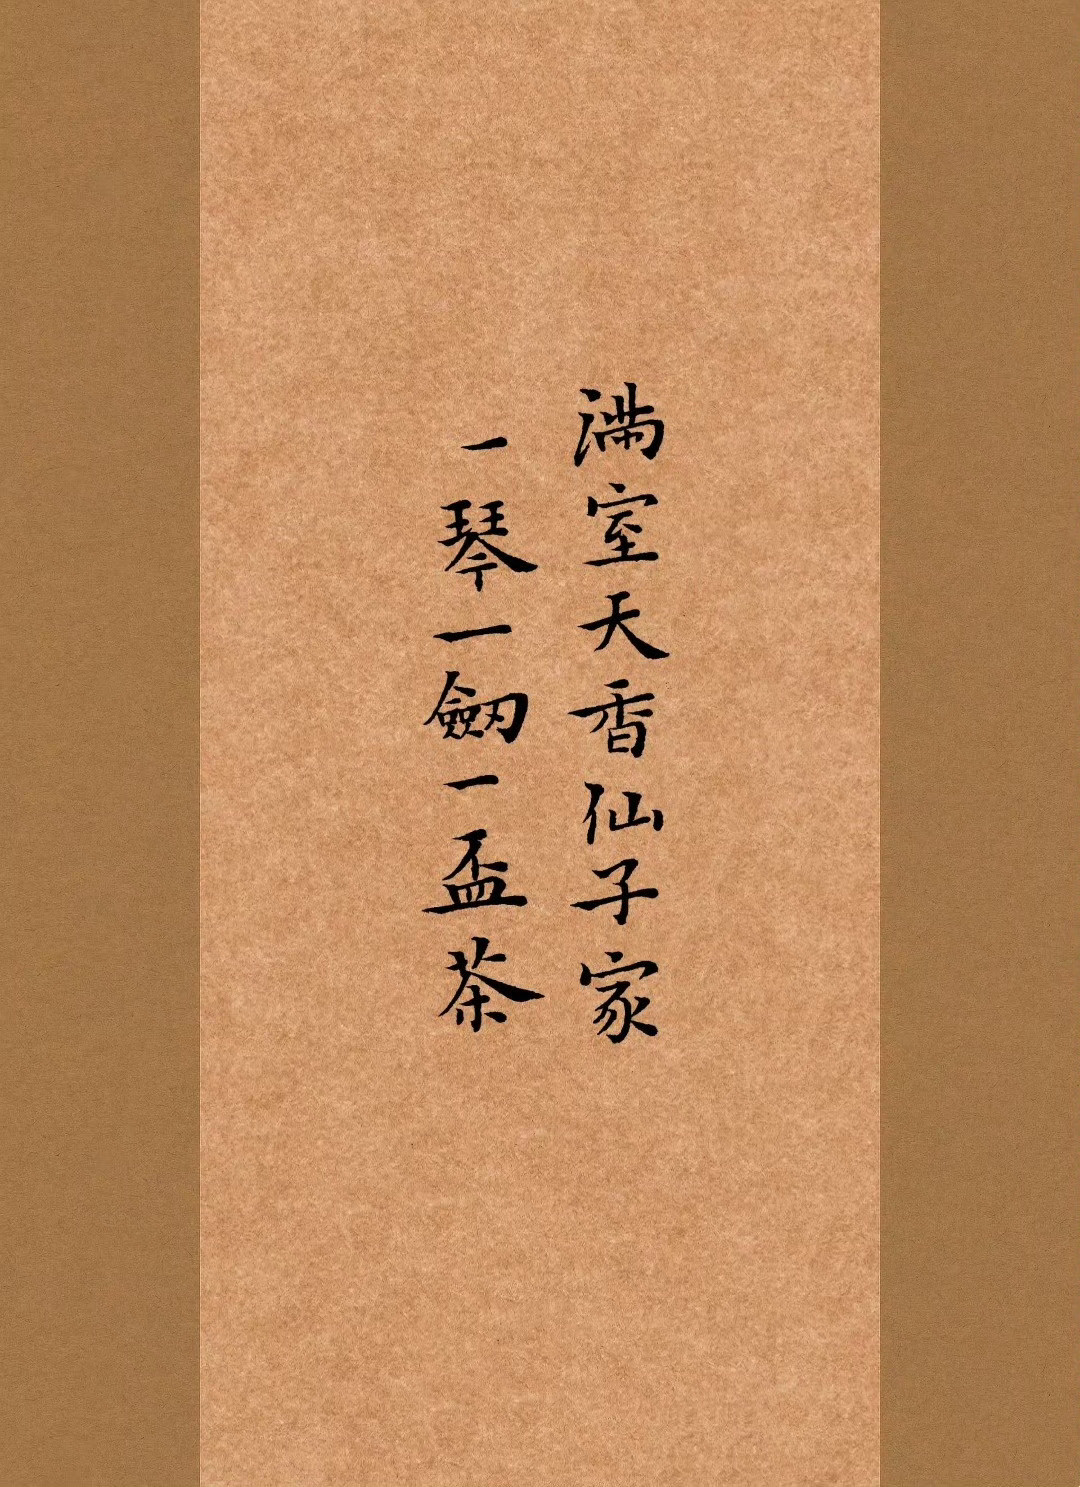 满室天香仙子家
一琴一劔一盃茶